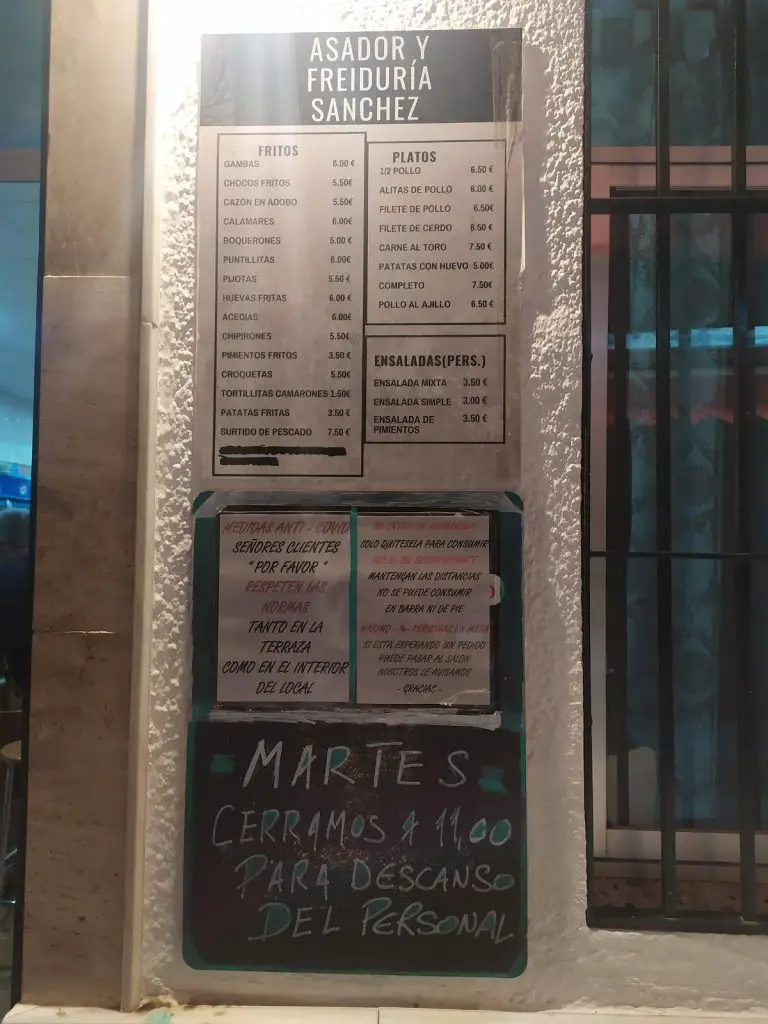 ASADOR Y
FREIDURÍA
SANCHEZ
FRITOS
GAMBAS 6.00 €
CHOCOS FRITOS 5.50€
CAZÓN EN ADOBO 5.50€
CALAMARES 6.00€
BOQUERONES 5.00 €
PUNTILLITAS 6.00€
PIJOTAS 5.50 €
HUEVAS FRITAS 6.00 €
ACEDIAS 6.00€
CHIPIRONES 5.50€
PIMIENTOS FRITOS 3.50 €
CROQUETAS 5.50€
TORTILLITAS CAMARONES 1.50€
PATATAS FRITAS 3.50 €
SURTIDO DE PESCADO 7.50 €
PLATOS
1/2 POLLO 6.50 €
ALITAS DE POLLO 6.00 €
FILETE DE POLLO 6.50€
FILETE DE CERDO 6.50 €
CARNE AL TORO 7.50 €
PATATAS CON HUEVO 5.00€
COMPLETO 7.50€
POLLO AL AJILLO 6.50 €
ENSALADAS(PERS.)
ENSALADA MIXTA 3.50 €
ENSALADA SIMPLE 3.00 €
ENSALADA DE 3.50 €
PIMIENTOS
MEDIDAS ANTI - COVID
SEÑORES CLIENTES
" POR FAVOR "
RESPETEN LAS
NORMAS
TANTO EN LA
TERRAZA
COMO EN EL INTERIOR
DEL LOCAL
SOLO QUITESELA PARA CONSUMIR
MANTENGAN LAS DISTANCIAS
NO SE PUEDE CONSUMIR
EN BARRA NI DE PIE
MAXIMO - 4 - PERSONAS EN MESA
SI ESTA ESPERANDO UN PEDIDO
PUEDE PASAR AL SALON
NOSOTROS LE AVISAMOS
- GRACIAS -
MARTES
CERRAMOS A 11,00
PARA DESCANSO
DEL PERSONAL